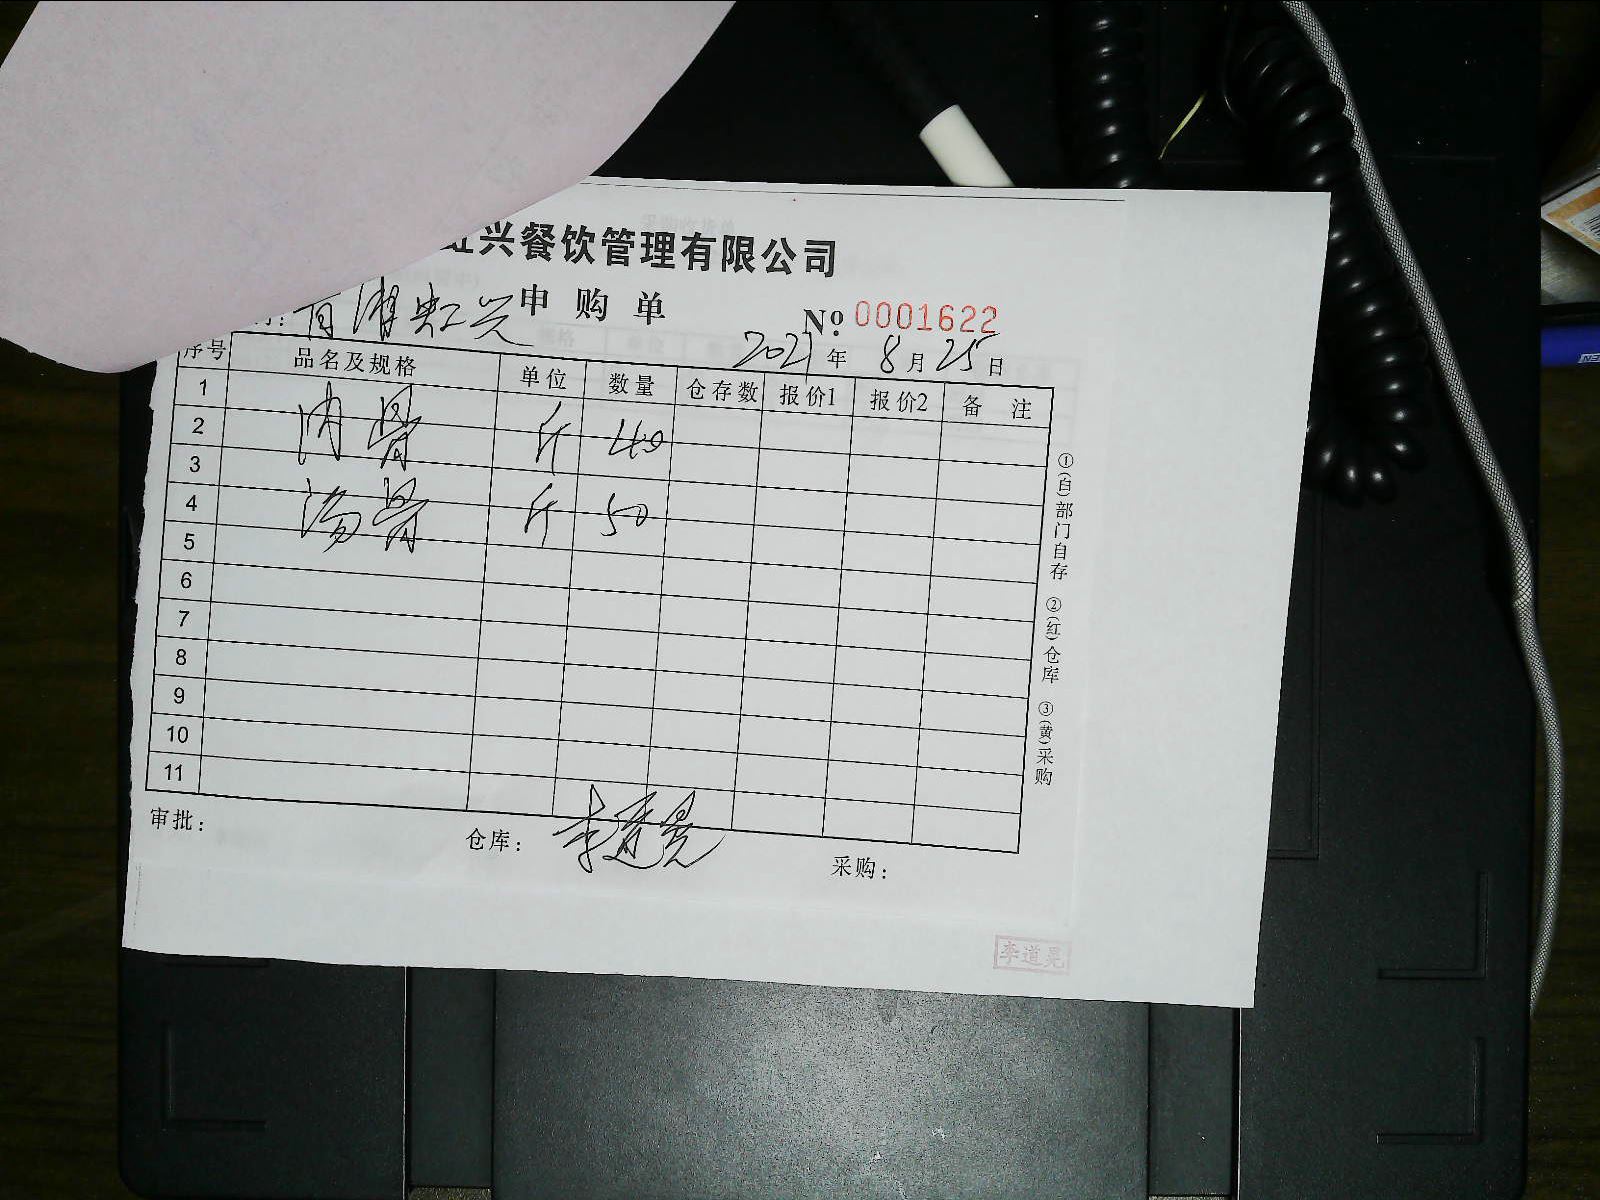 兴餐饮管理有限公司
申购单
№: 0001622
虹兴
2021年8月25日
序号 品名及规格 单位 数量 仓存数 报价1 报价2 备注
1
2 肉骨 斤 40
3
4 汤骨 斤 50
5
6
7
8
9
10
11
①(白)部门自存 ②(红)仓库 ③(黄)采购
审批: 仓库: 李道晃 采购:
李道晃